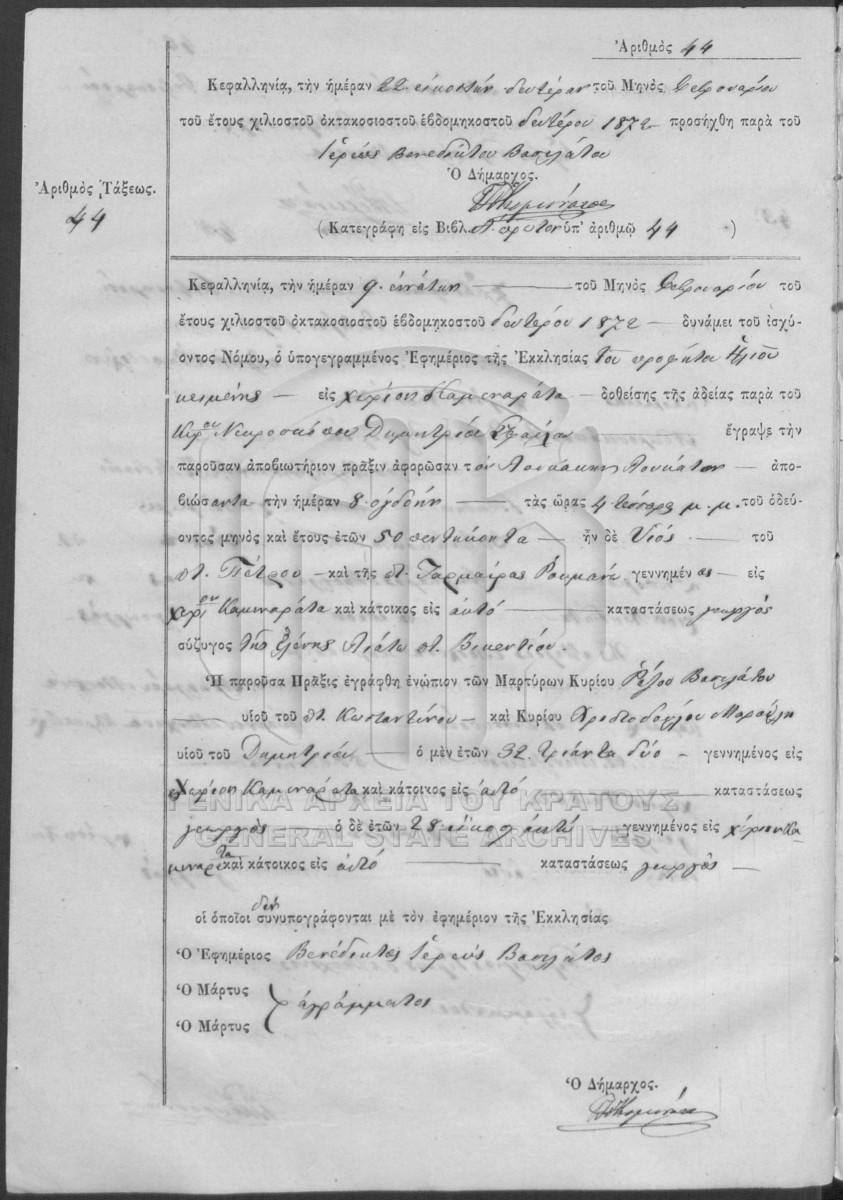 Ἀριθμὸς 44
Κεφαλληνίᾳ, τὴν ἡμέραν 22 εἰκοστὴν δευτέραν τοῦ Μηνὸς Φεβρουαρίου
τοῦ ἔτους χιλιοστοῦ ὀκτακοσιοστοῦ ἑβδομηκοστοῦ δευτέρου 1872 προσήχθη παρὰ τοῦ
Ἱερέως Βενεδίκτου Βασιλάτου
Ὁ Δήμαρχος.
Ἀριθμὸς Τάξεως.
44
(Κατεγράφη εἰς Βιβλ. πρῶτον ὑπ' ἀριθμῷ 44 .)
Κεφαλληνίᾳ, τὴν ἡμέραν 9. ἐννάτην — τοῦ Μηνὸς Φεβρουαρίου τοῦ
ἔτους χιλιοστοῦ ὀκτακοσιοστοῦ ἑβδομηκοστοῦ δευτέρου 1872 — δυνάμει τοῦ ἰσχύ-
οντος Νόμου, ὁ ὑπογεγραμμένος Ἐφημέριος τῆς Ἐκκλησίας τοῦ προφήτου Ἠλιοῦ
κειμένης — εἰς χωρίον Καμιναράτα — δοθείσης τῆς ἀδείας παρὰ τοῦ
Κυρ ου Νεκροσκόπου Δημητρίου — ἔγραψε τὴν
παροῦσαν ἀποβιωτήριον πρᾶξιν ἀφορῶσαν τὸν Λουκάκην Λουκάτον — ἀπο-
βιώσαντα τὴν ἡμέραν 8 ὀγδόην — τὰς ὥρας 4 τέσσαρες μ. μ. τοῦ ὁδεύ-
οντος μηνὸς καὶ ἔτους ἐτῶν 50 πεντήκοντα — ἦν δὲ Υἱός — τοῦ
ποτ. Πέτρου — καὶ τῆς ποτ. Ρουμανώ γεννημένος — εἰς
χωρίον Καμιναράτα καὶ κάτοικος εἰς αὐτό — καταστάσεως γεωργὸς
σύζυγος τῆς Ἑλένης ποτ. Βικεντίου.
Ἡ παροῦσα Πρᾶξις ἐγράφθη ἐνώπιον τῶν Μαρτύρων Κυρίου Βασιλάτου
— υἱοῦ τοῦ ποτ. Κωσταντίνου — καὶ Κυρίου Χριστοδούλου Μαρούλη
υἱοῦ τοῦ Δημητρίου — ὁ μὲν ἐτῶν 32. τριάντα δύο — γεννημένος εἰς
χωρίον Καμιναράτα καὶ κάτοικος εἰς αὐτό — καταστάσεως
γεωργὸς ὁ δὲ ἐτῶν 28 εἴκοσι ὀκτώ — γεννημένος εἰς χωρίον Κα
μιναράτα καὶ κάτοικος εἰς αὐτό — καταστάσεως γεωργὸς —
οἱ ὁποῖοι δὲν συνυπογράφονται μὲ τὸν ἐφημέριον τῆς Ἐκκλησίας
Ὁ Ἐφημέριος Βενέδικτος Ἱερεύς Βασιλάτος
Ὁ Μάρτυς
ἀγράμματοι
Ὁ Μάρτυς
Ὁ Δήμαρχος.
ΓΕΝΙΚΑ ΑΡΧΕΙΑ ΤΟΥ ΚΡΑΤΟΥΣ
GENERAL STATE ARCHIVES